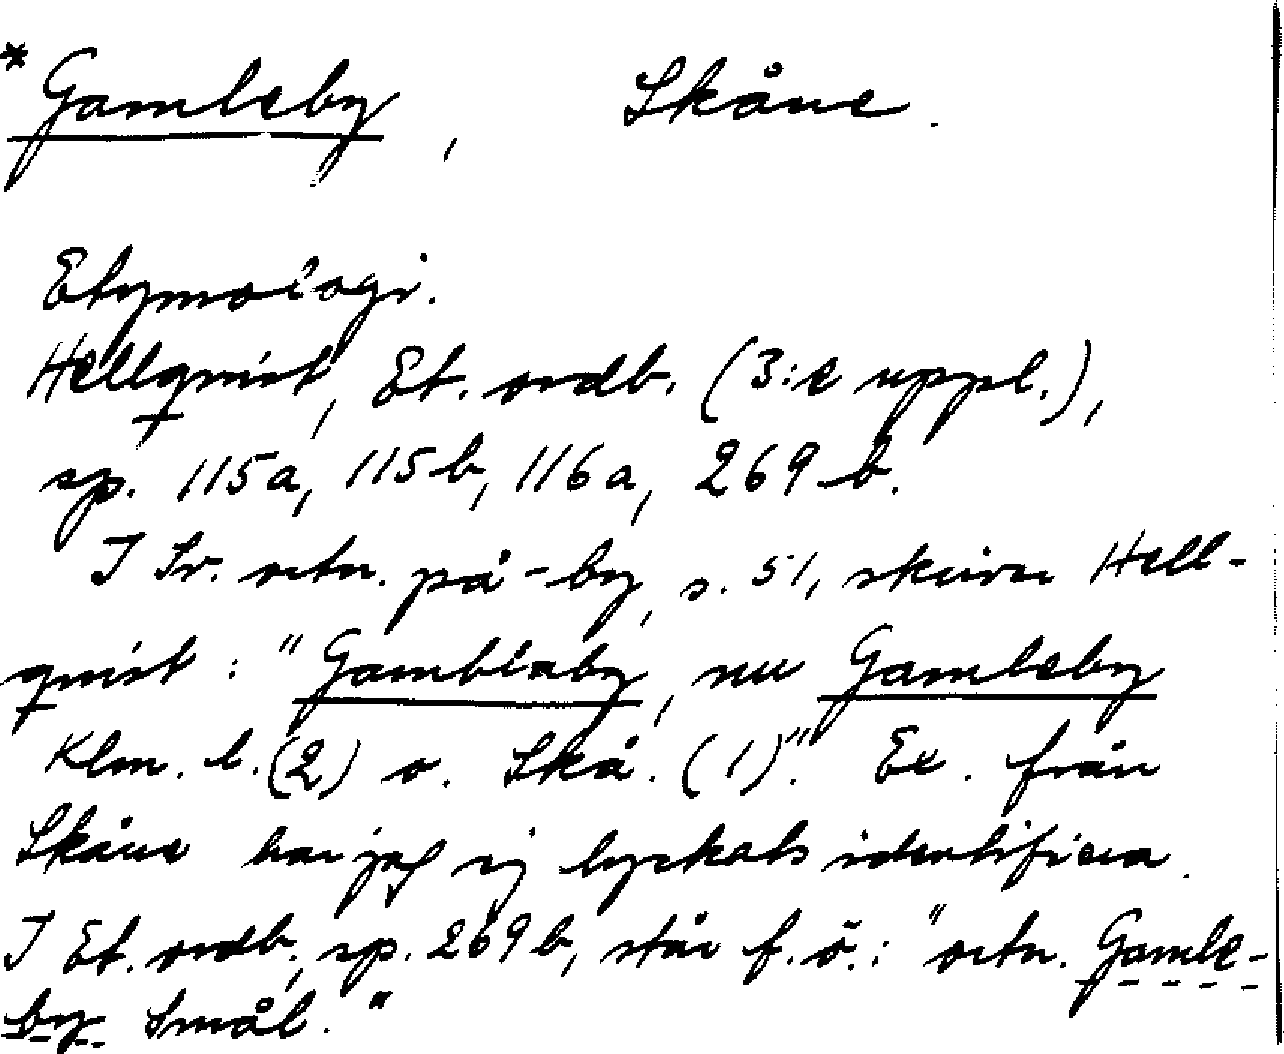 * Gamleby, Skåne.
Etymologi.
Hellquist, Et. ordb. (3:e uppl.),
sp. 115a, 115b, 116a, 269 b.
I Sv. ortn. på -by, s. 51, skriver Hell-
quist: "Gamblaby, nu Gamleby
Klm. l. (2) o. Skå. (1)". Ex. från
Skåne har jag ej lyckats identifiera.
I Et. ordb., sp. 269 b, står f. ö.: "ortn. Gamle-
by Smål."